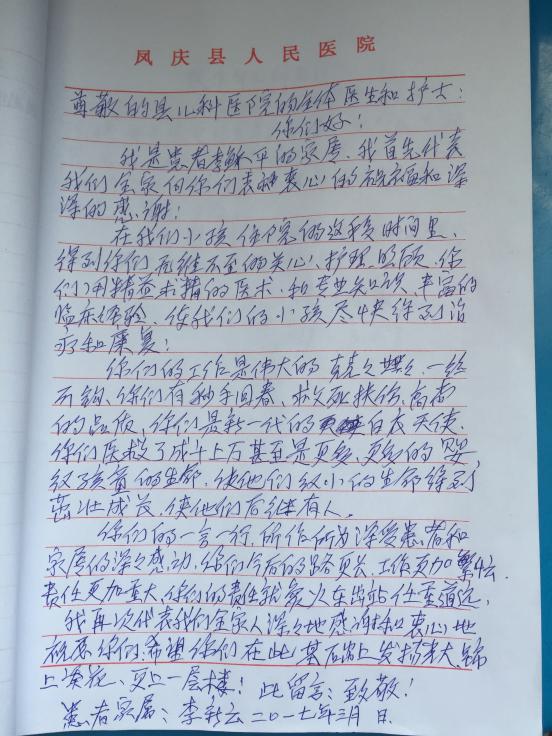 凤庆县人民医院
尊敬的县儿科医院的全体医生和护士:
你们好!
我是患者李 平的家属、我首先代表
我们全家向你们表 衷心的祝福和深
深的感谢!
在我们小孩住院的这段时间里、
得到你们无维不至的关心、护理、照顾、你
们用精益求精的医术、和专业知识、丰富的
临床经验、使我们的小孩尽快得到治
疗和康复!
你们的工作是伟大的、兢々业々、一丝
不苟、你们有种手回春、救死扶伤、高尚
的品质、你们是新一代的 白衣天使、
你们医救了成千上万甚至是更多、更多的婴
幼孩童的生命、使他们幼小的生命得到
茁壮成长、使他们后继有人。
你们的一言一行、所作所为深受患者和
家属的深々感动、你们今后的路更长、工作更加繁忙、
责任更加重大、你们的责任就象火车出站任重道远、
我再次代表我们全家人深々地感谢和衷心地
祝愿你们、希望你们在此基础上发扬光大、锦
上添花、更上一层楼! 此留言:致敬!
患者家属:李 云 二〇一七年三月 日